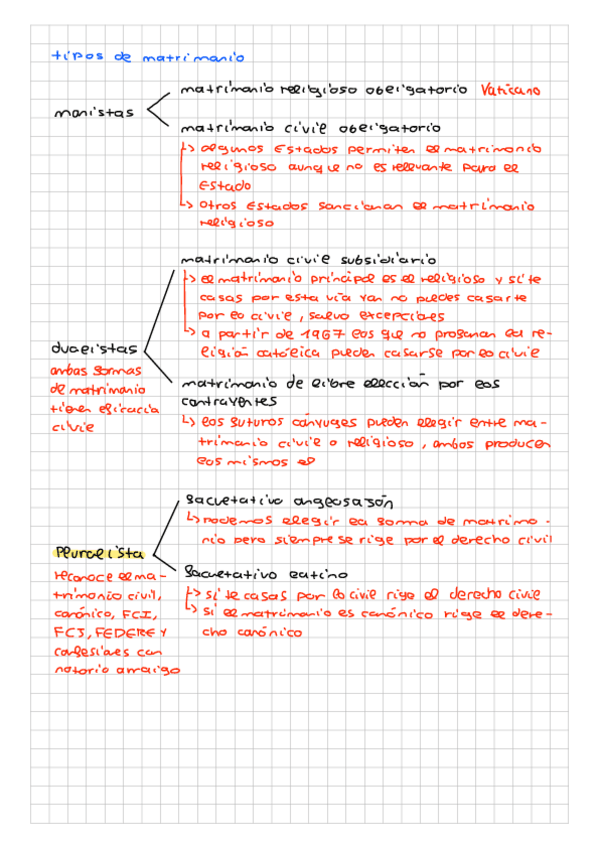 tipos de matrimonio
matrimonio religioso obligatorio Vaticano
monistas
matrimonio civil obligatorio
↳ algunos Estados permiten el matrimonio
religioso aunque no es relevante para el
Estado
↳ Otros Estados sancionan el matrimonio
religioso
matrimonio civil subsidiario
↳ el matrimonio principal es el religioso y si te
casas por esta vía ya no puedes casarte
por lo civil, salvo excepciones
↳ a partir de 1967 los que no profanan la re-
ligión católica pueden casarse por lo civil
dualistas
ambas formas
de matrimonio
tienen eficacia
civil
matrimonio de libre elección por los
contrayentes
↳ los futuros cónyuges pueden elegir entre ma-
trimonio civil o religioso, ambos producen
los mismos ef
facultativo anglosajón
↳ podemos elegir la forma de matrimo-
nio pero siempre se rige por el derecho civil
pluralista
reconoce el ma-
trimonio civil,
canónico, FCI,
FCJ, FEDERE y
confesiones con
notorio arraigo
facultativo latino
↳ si te casas por lo civil rige el derecho civil
↳ si el matrimonio es canónico rige el dere-
cho canónico